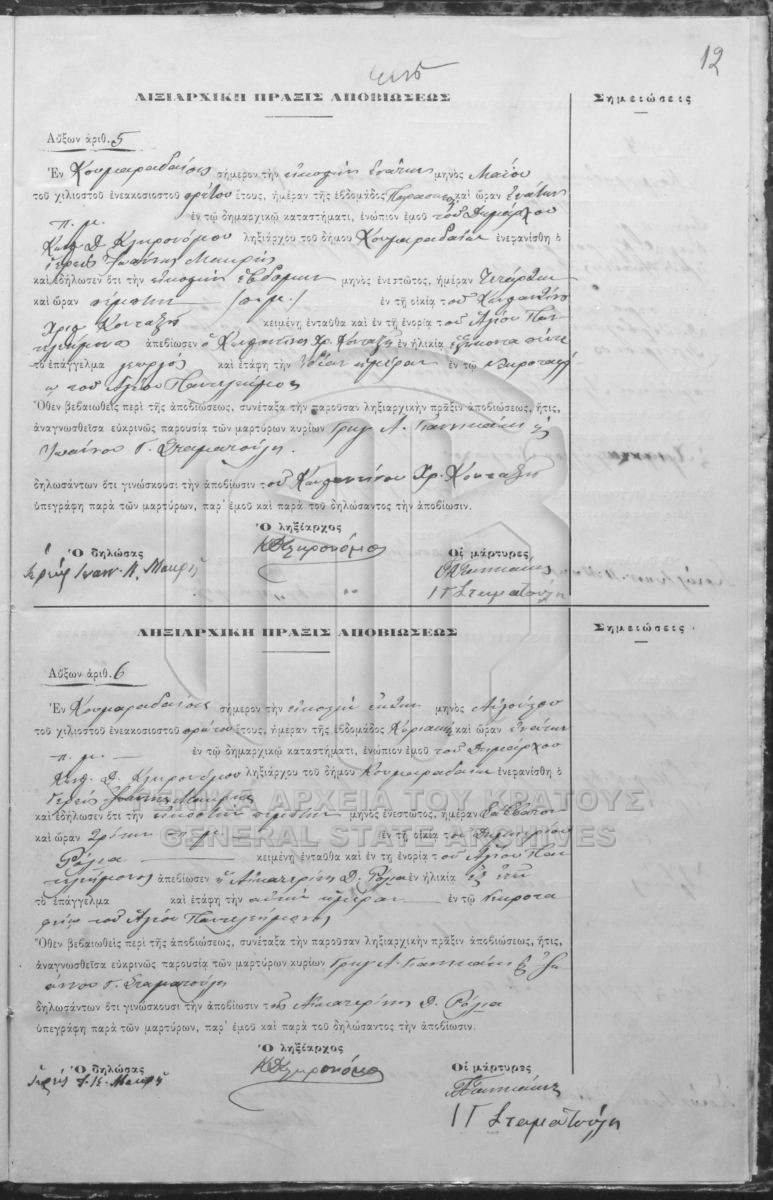 12
ΛΙΞΙΑΡΧΙΚΗ ΠΡΑΞΙΣ ΑΠΟΒΙΩΣΕΩΣ
Σημειώσεις
Αὔξων ἀριθ. 5
Ἐν Κουμαραδαίοις σήμερον τὴν εἰκοστὴν ἐνάτην μηνὸς Μαΐου
τοῦ χιλιοστοῦ ἐνεακοσιοστοῦ πρώτου ἔτους, ἡμέραν τῆς ἑβδομάδος καὶ ὥραν ἐνάτην
π. μ. ἐν τῷ δημαρχικῷ καταστήματι, ἐνώπιον ἐμοῦ τοῦ Δημάρχου
Κωνσ. Δ. Κληρονόμου ληξιάρχου τοῦ δήμου Κουμαραδαίων ἐνεφανίσθη ὁ
ἱερεὺς Ἰωάννης Μακρῆς
καὶ ἐδήλωσεν ὅτι τὴν εἰκοστὴν ἑβδόμην μηνὸς ἐνεστῶτος, ἡμέραν Τετάρτην
καὶ ὥραν πέμπτην (π. μ.) ἐν τῇ οἰκίᾳ τοῦ Κωνσταντίνου
Χρισ. Κονταξῆ κειμένῃ ἐνταῦθα καὶ ἐν τῇ ἐνορίᾳ τοῦ Ἁγίου Παν
τελεήμονος ἀπεβίωσεν ὁ Κωνσταντῖνος Χρ. Κονταξῆς ἐν ἡλικίᾳ ἑξήκοντα πέντε
τὸ ἐπάγγελμα γεωργὸς καὶ ἐτάφη τὴν ἰδίαν ἡμέραν ἐν τῷ νεκροταφεί
ῳ τοῦ Ἁγίου Παντελεήμονος
Ὅθεν βεβαιωθεὶς περὶ τῆς ἀποβιώσεως, συνέταξα τὴν παροῦσαν ληξιαρχικὴν πρᾶξιν ἀποβιώσεως, ἥτις,
ἀναγνωσθεῖσα εὐκρινῶς παρουσίᾳ τῶν μαρτύρων κυρίων Γρηγ. Λ. Γιαννικάκη
Ἰωάννου Γ. Σταματούλη
δηλωσάντων ὅτι γινώσκουσι τὴν ἀποβίωσιν τοῦ Κωνσταντίνου Χρ. Κονταξῆ
ὑπεγράφη παρὰ τῶν μαρτύρων, παρ' ἐμοῦ καὶ παρὰ τοῦ δηλώσαντος τὴν ἀποβίωσιν.
Ὁ ληξίαρχος
Ὁ δηλώσας
ΚΔΚληρονόμος
Οἱ μάρτυρες
Ἱερεὺς Ἰωαν. Κ. Μακρῆς
ΙΓ Σταματούλης
ΛΗΞΙΑΡΧΙΚΗ ΠΡΑΞΙΣ ΑΠΟΒΙΩΣΕΩΣ
Σημειώσεις
Αὔξων ἀριθ. 6
Ἐν Κουμαραδαίοις σήμερον τὴν εἰκοστὴν ἕκτην μηνὸς Αὐγούστου
τοῦ χιλιοστοῦ ἐνεακοσιοστοῦ πρώτου ἔτους, ἡμέραν τῆς ἑβδομάδος Κυριακὴν καὶ ὥραν ἐνάτην
π. μ. ἐν τῷ δημαρχικῷ καταστήματι, ἐνώπιον ἐμοῦ τοῦ Δημάρχου
Κωνσ. Δ. Κληρονόμου ληξιάρχου τοῦ δήμου Κουμαραδαίων ἐνεφανίσθη ὁ
ἱερεὺς Ἰωάννης Μακρῆς
ΓΕΝΙΚΑ ΑΡΧΕΙΑ ΤΟΥ ΚΡΑΤΟΥΣ
καὶ ἐδήλωσεν ὅτι τὴν εἰκοστὴν πέμπτην μηνὸς ἐνεστῶτος, ἡμέραν Σάββατον
GENERAL STATE ARCHIVES
καὶ ὥραν τρίτην π. μ. ἐν τῇ οἰκίᾳ τοῦ Δημητρίου
Ρόλια κειμένῃ ἐνταῦθα καὶ ἐν τῇ ἐνορίᾳ τοῦ Ἁγίου Παν
τελεήμονος ἀπεβίωσεν ἡ Αἰκατερίνη Δ. Ρόλια ἐν ἡλικίᾳ ἓξ ἐτῶν
τὸ ἐπάγγελμα καὶ ἐτάφη τὴν αὐτὴν ἡμέραν ἐν τῷ Νεκροτα
φείῳ τοῦ Ἁγίου Παντελεήμονος
Ὅθεν βεβαιωθεὶς περὶ τῆς ἀποβιώσεως, συνέταξα τὴν παροῦσαν ληξιαρχικὴν πρᾶξιν ἀποβιώσεως, ἥτις,
ἀναγνωσθεῖσα εὐκρινῶς παρουσίᾳ τῶν μαρτύρων κυρίων Γρηγ. Λ. Γιαννικάκη Ἰω
άννου Γ. Σταματούλη
δηλωσάντων ὅτι γινώσκουσι τὴν ἀποβίωσιν τῆς Αἰκατερίνης Δ. Ρόλια
ὑπεγράφη παρὰ τῶν μαρτύρων, παρ' ἐμοῦ καὶ παρὰ τοῦ δηλώσαντος τὴν ἀποβίωσιν.
Ὁ ληξίαρχος
Ὁ δηλώσας
ΚΔΚληρονόμος
Οἱ μάρτυρες
Μακρῆς
ΙΓ Σταματούλης